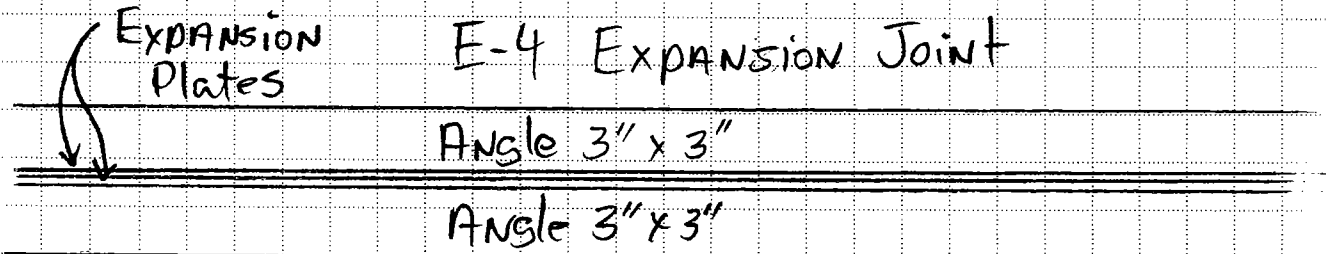 Expansion
Plates
E-4 Expansion Joint
Angle 3" x 3"
Angle 3" x 3"